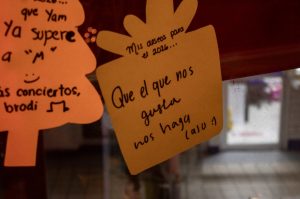 que Yam
Ya supere
a "M"
ás conciertos,
brodi
Mis deseos para
el 2026...
Que el que nos
gusta
nos haga